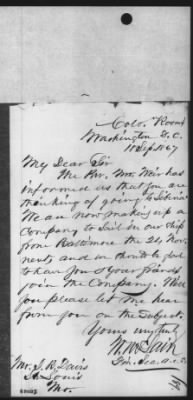 Colo. Rooms
Washington D.C.
11 Sep. 1867
My Dear Sir
The Rev. Mr. Weir has
informed us that you are
thinking of going to Liberia
We are now making up a
Company to Sail in our ship
from Baltimore the 24 Nov.
next and we should be glad
to have you & your friends
join the Company. Will
you please let me hear
from you on the subject.
Yours truly
Mr. J. B. Davis
St. Louis
Mo.